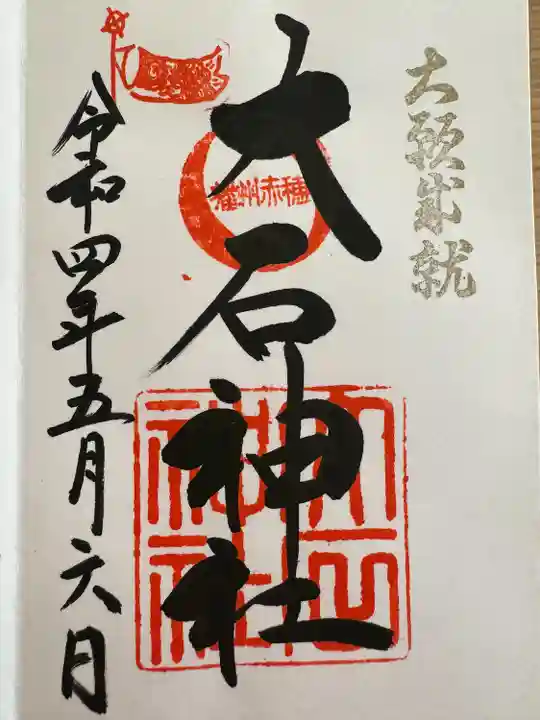 大願成就
大石神社
播州赤穂
大石神社
令和四年五月六日